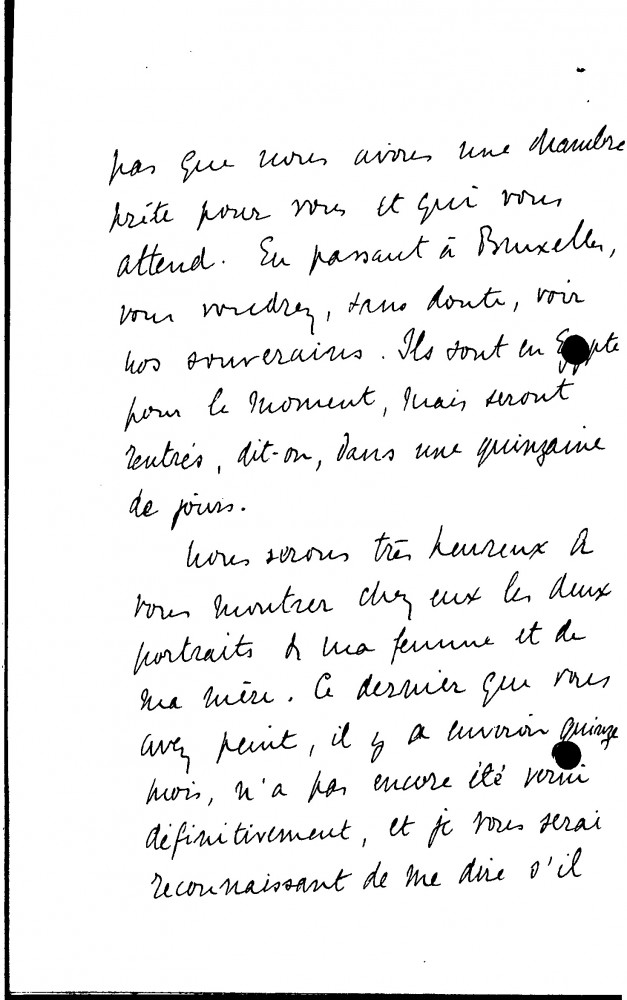 pas que nous avons une chambre
prête pour vous et qui vous
attend. En passant à Bruxelles,
vous voudrez, sans doute, voir
nos souverains. Ils sont en Egypte
pour le moment, mais seront
rentrés, dit-on, dans une quinzaine
de jours.
Nous serons très heureux de
vous montrer chez eux les deux
portraits de ma femme et de
ma mère. Ce dernier que vous
avez peint, il y a environ quinze
mois, n'a pas encore été verni
définitivement, et je vous serai
reconnaissant de me dire s'il